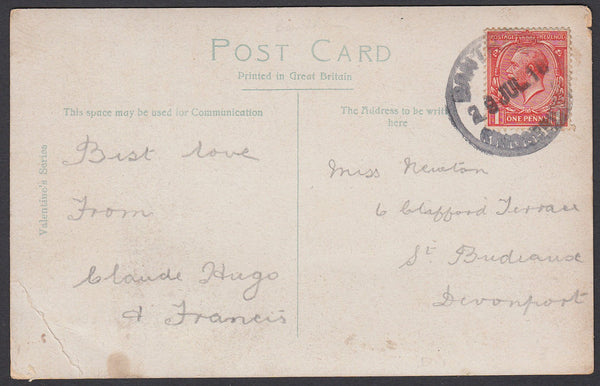 POST CARD
Printed in Great Britain
This space may be used for Communication
The Address to be
here
Valentine's Series
POSTAGE REVENUE
ONE PENNY
9 JUL 1
Best love
From
Claude Hugo
& Francis
Miss Newton
6 Clafford Terrace
St. Budeaux
Devonport